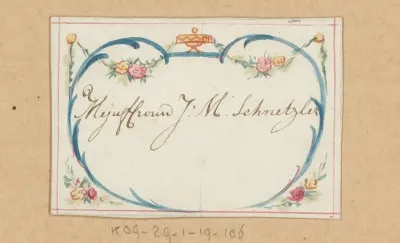 a
Mejuffrouw J: M: Schnetzler
KOG-ZG-1-19-106